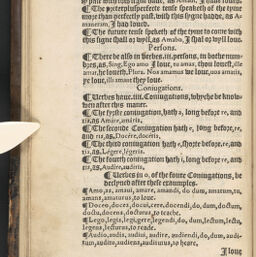 ¶ The preterpluperfect tense speaketh of the tyme
more than perfectly past, with this sygne hadde, as A-
maueram, I had loued.
¶ The future tense speaketh of the tyme to come with
this signe shall or wyll, as Amabo, I shal or wyll loue.
Persons.
¶ There be also in Verbes .iii. persons, in bothe num-
bres, as, Sing. Ego amo I loue, tu amas, thou louest, ille
amat, he loueth, Plura. Nos amamus we loue, uos amatis,
ye loue, illi amant they loue.
Coniugations.
¶ Verbes haue .iiii. Coniugations, whyche be know-
wen after this maner.
¶ The fyrste coniugation hath a, long before re, and
ris, as, Amáre, amáris.
¶ The seconde Coniugation hath e, long before re,
and ris, as, Docére, docéris.
¶ The third coniugation hath e, shorte before re, and
ris, as, Légere, légeris.
¶ The fourth coniugation hath i, long before re, and
ris, as, Audíre, audíris.
¶ Verbes in o, of the foure Coniugations, be
declyned after these examples.
¶ Amo, as, amaui, amare, amandi, do, dum, amatum, tu,
amans, amaturus, to loue.
¶ Doceo, doces, docui, cere, docendi, do, dum, doctum,
doctu, docens, docturus, to teache.
¶ Lego, legis, legi, gere, legendi, do, dum, lectum, lectu,
legens, lecturus, to reade.
¶ Audio, audis, audiui, audire, audiendi, do, dum, audi-
tum, auditu, audiens, auditurus, to heare.
I loue